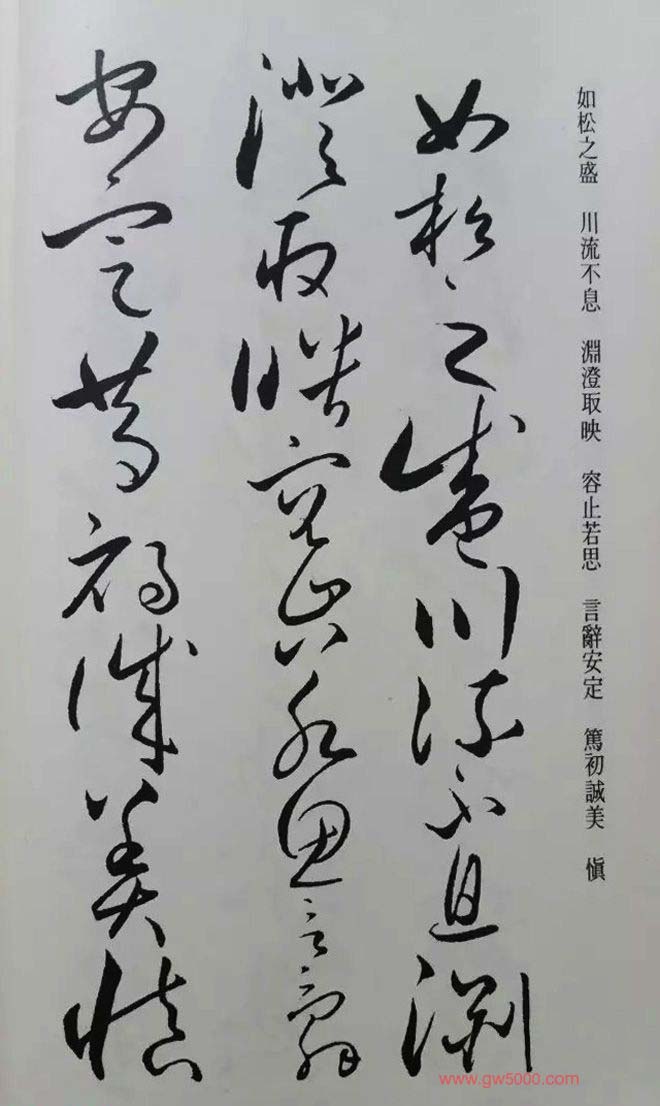 如松之盛　川流不息　淵澄取映　容止若思　言辭安定　篤初誠美　慎
如松之盛川流不息淵
澄取映容止若思言辭
安定篤初誠美慎
www.gw5000.com